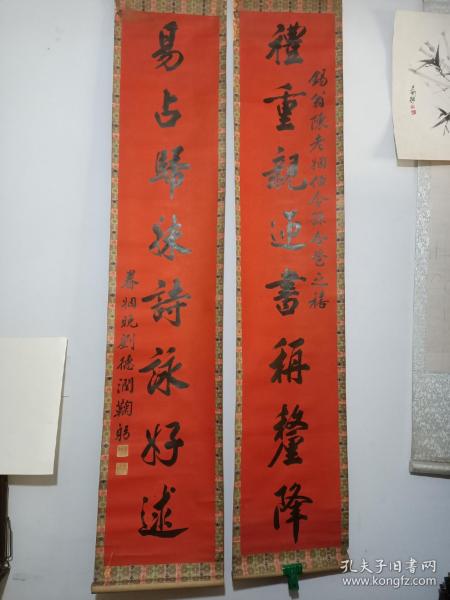 禮重親迎書稱釐降
錫翁陳老姻伯令孫合卺之禧
易占歸妹詩詠好逑
眷姻晚劉德潤鞠躬
孔夫子旧书网
www.kongfz.com